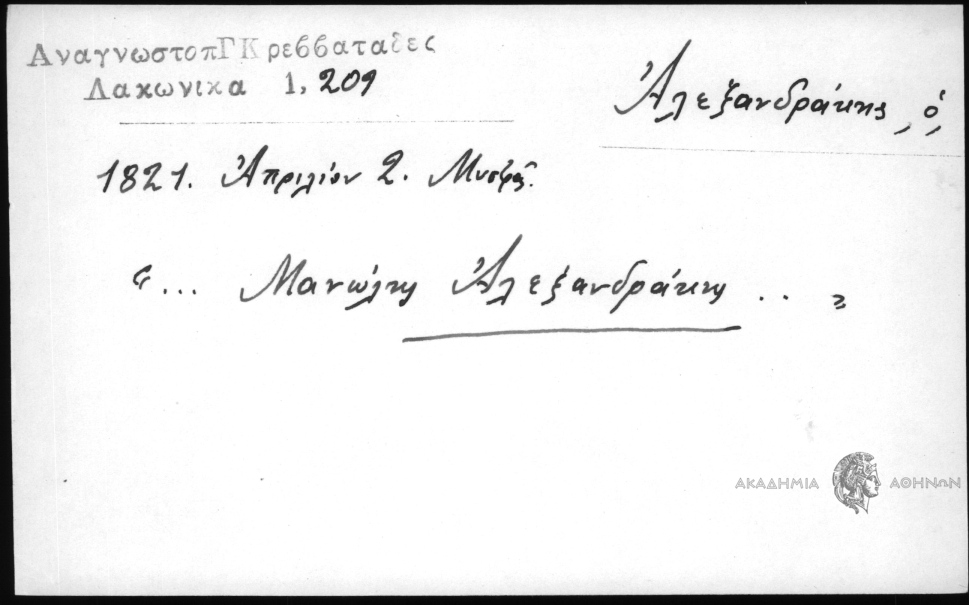 ΑναγνωστοπΓΚρεββαταδες
Λακωνικα 1, 209
Ἀλεξανδράκης, ὁ,
1821. Ἀπριλίου 2. Μυστρᾶ.
"... Μανώλης Ἀλεξανδράκης .. "
ΑΚΑΔΗΜΙΑ ΑΘΗΝΩΝ